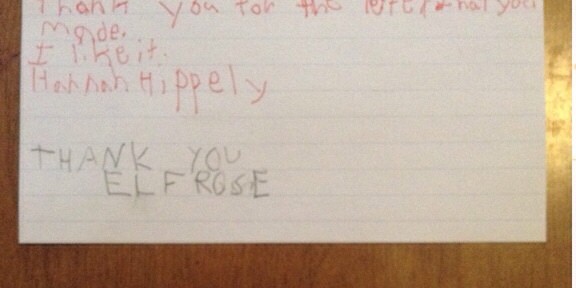 Thank you for the letter that you
made.
I like it.
Hannah Hippely
THANK YOU
ELF ROSE